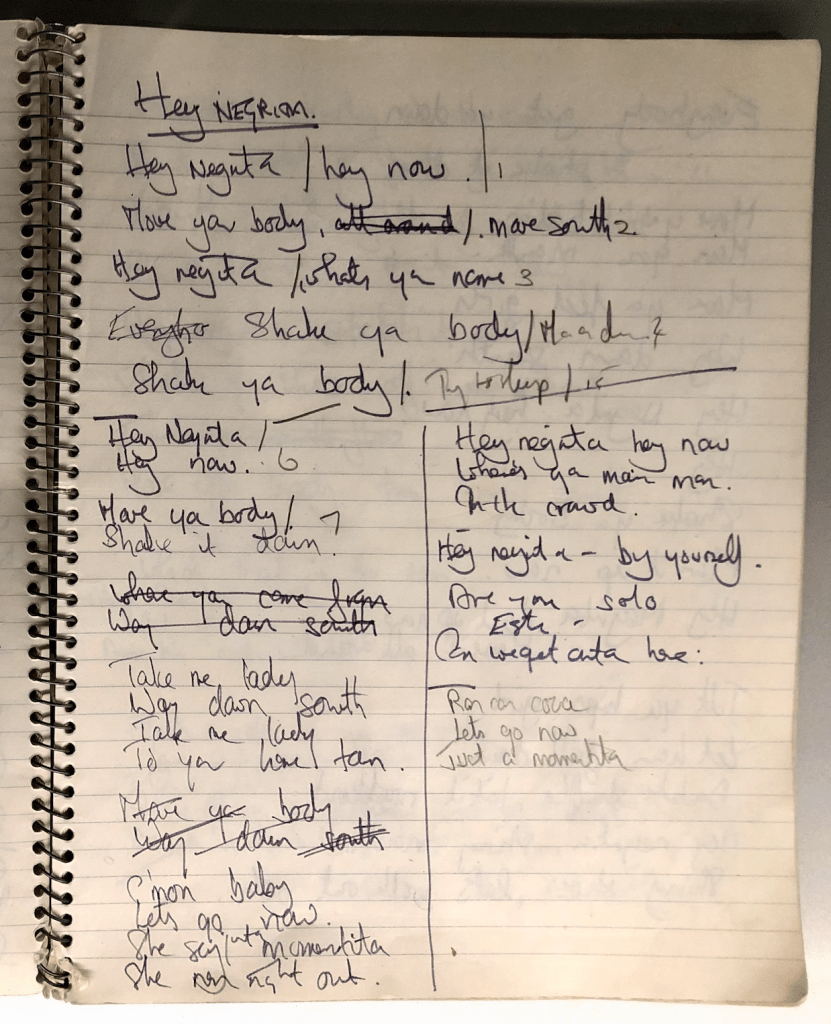 Hey NEGRITA.
Hey Negrita / hey now . / 1
Move yar body, all around /. move south 2
Hey negrita /, whats ya name 3
Shake ya body /
Shake ya body /.
Hey Negrita /
Hey now. 6
Move ya body / 7
Shake it down.
Where ya come from
Way down south
Take me lady
Way down south
Take me lady
To your home town.
Move ya body
Way down south
C'mon baby
Lets go now.
She say momentita
She right out.
Hey negrita hey now
Where's ya main man.
In the crowd.
Hey negrita - by yourself.
Are you solo
Can we get outa here:
Ron con coca
Lets go now
Just a momentita